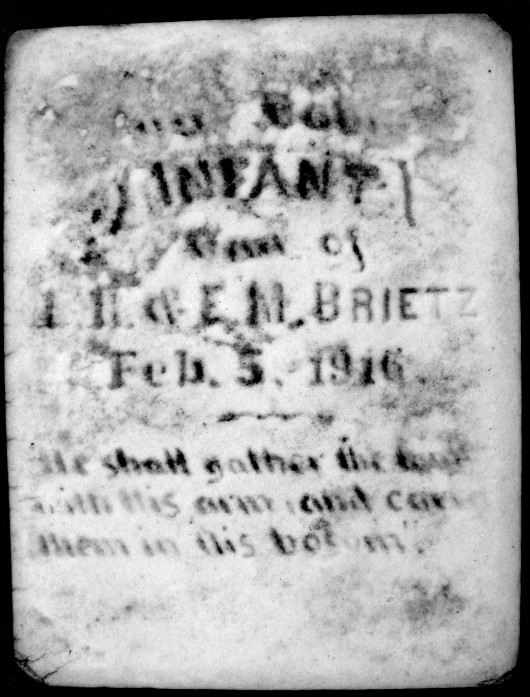 INFANT
Son of
& E. M. BRIETZ
Feb. 5, 1916
He shall gather the
with His arm, and
them in His bosom".